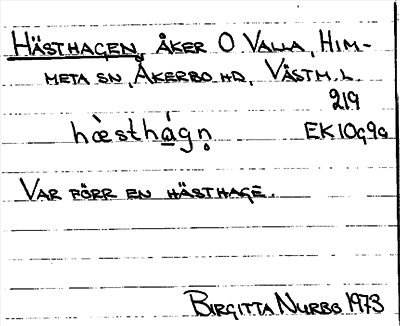 HÄSTHAGEN, ÅKER O VALLA, HIM-
META SN, ÅKERBO HD, VÄSTM. L.
219
hæ̀sthágn̥ EK10g9a
VAR FÖRR EN HÄSTHAGE.
BIRGITTA NURBG 1973